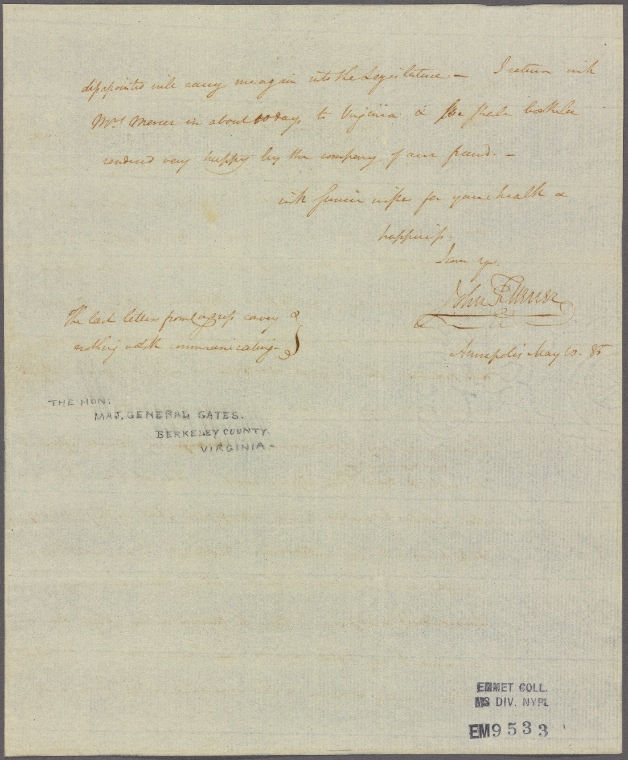 disappointed will carry me again into the Legislature. — I return with
Mrs Mercer in about 10 days to Virginia & shall both be
rendered very happy by the company of our friend. —
with sincere wishes for your health &
happiness.
I am yrs.
John F Mercer
Annapolis May 10. 85
The last letters from Congress convey &
nothing worth communicating —
THE HON:
MAJ. GENERAL GATES.
BERKELEY COUNTY.
VIRGINIA —
EMMET COLL.
MS DIV. NYPL
EM9533